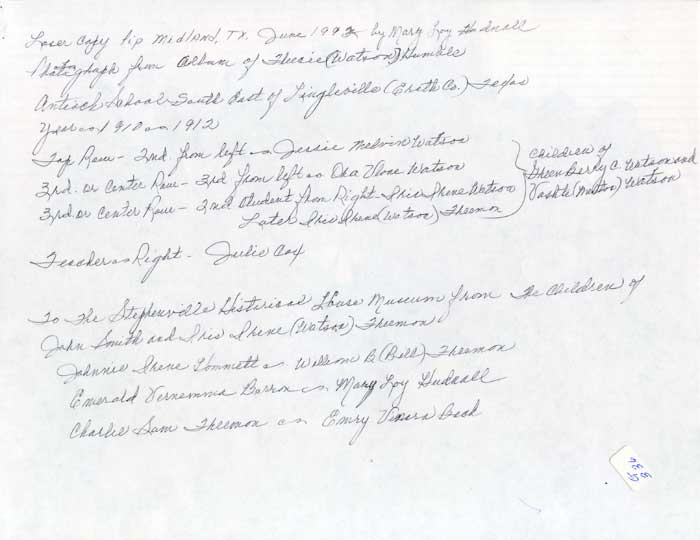 Laser Copy in Midland, Tx. June 1992 by Mary Loy Hudnall
Photograph from Album of (Watson)
Antioch School South East of Lingleville (Erath Co.) Texas
Year 1910 1912
Top Row - 2nd. from left Jessie Melvin Watson
3rd. or Center Row - 3rd. from left Oka Watson
3rd. or Center Row - 2nd student from Right - Iris Irene Watson
Later Iris Irene (Watson) Freemon
Children of
Green Berry C. Watson and
(Matson) Watson
Teacher Right - Julie Cox
To The Stephenville Historical House Museum from The Children of
John Smith and Iris Irene (Watson) Freemon
Johnnie Irene William B (Bill) Freemon
Emerald Barron Mary Loy Hudnall
Charlie Sam Freemon Emry